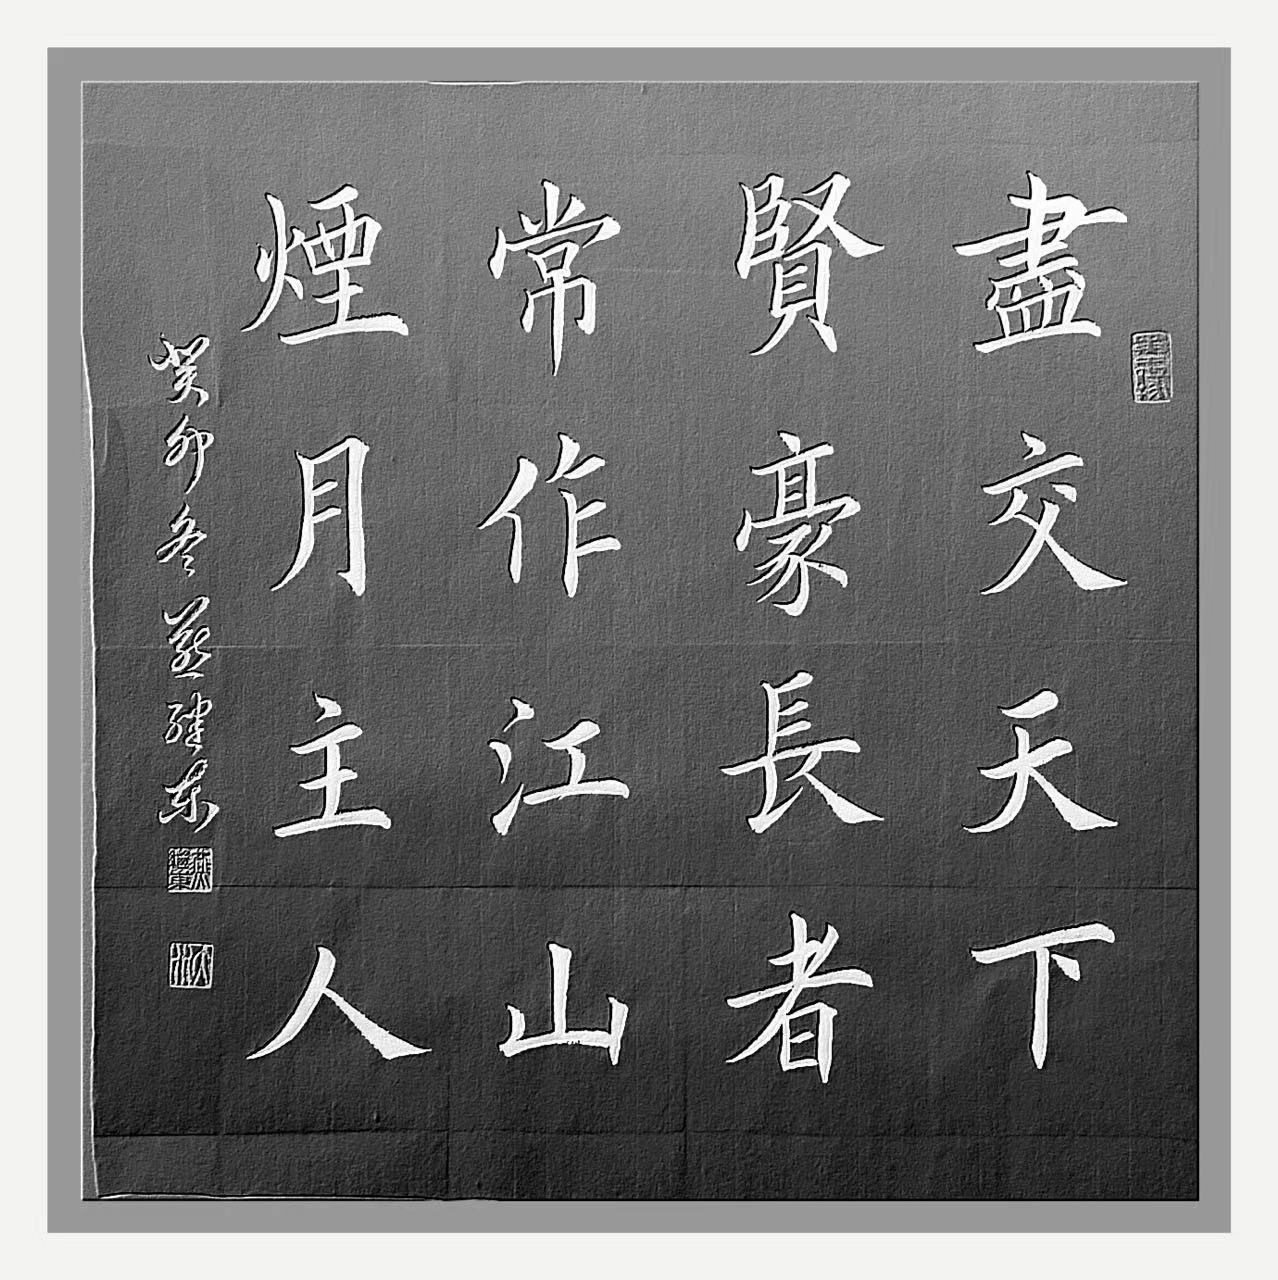 盡交天下
賢豪長者
常作江山
煙月主人
癸卯冬燕繼東
燕繼東